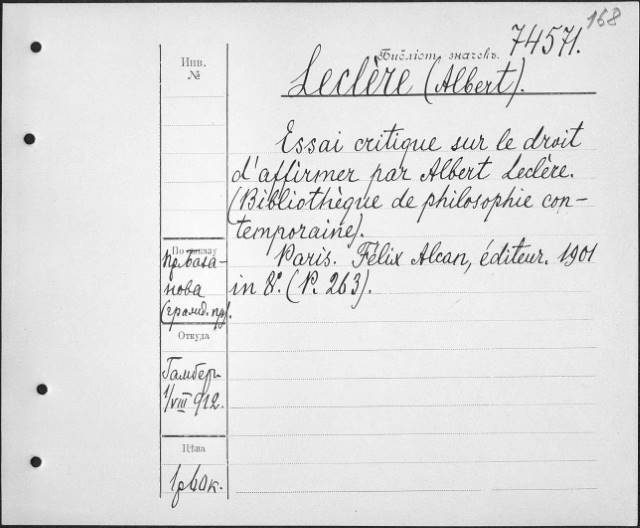 168
Библіот. значекъ. 74571.
Инв.
№
Leclère (Albert).
Essai critique sur le droit
d'affirmer par Albert Leclère.
(Bibliothèque de philosophie con-
temporaine).
Paris. Félix Alcan, éditeur. 1901
in 8º. (P. 263).
По заказу
нова
Откуда
1/VIII 912.
Цѣна